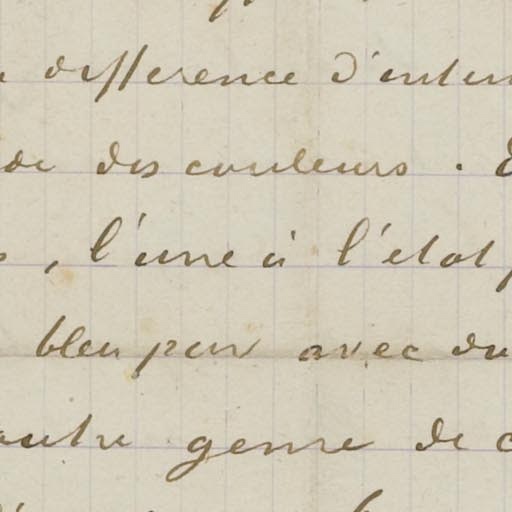 difference d'inten
de des couleurs.
, l'une à l'état
bleu pur avec du
autre genre de c